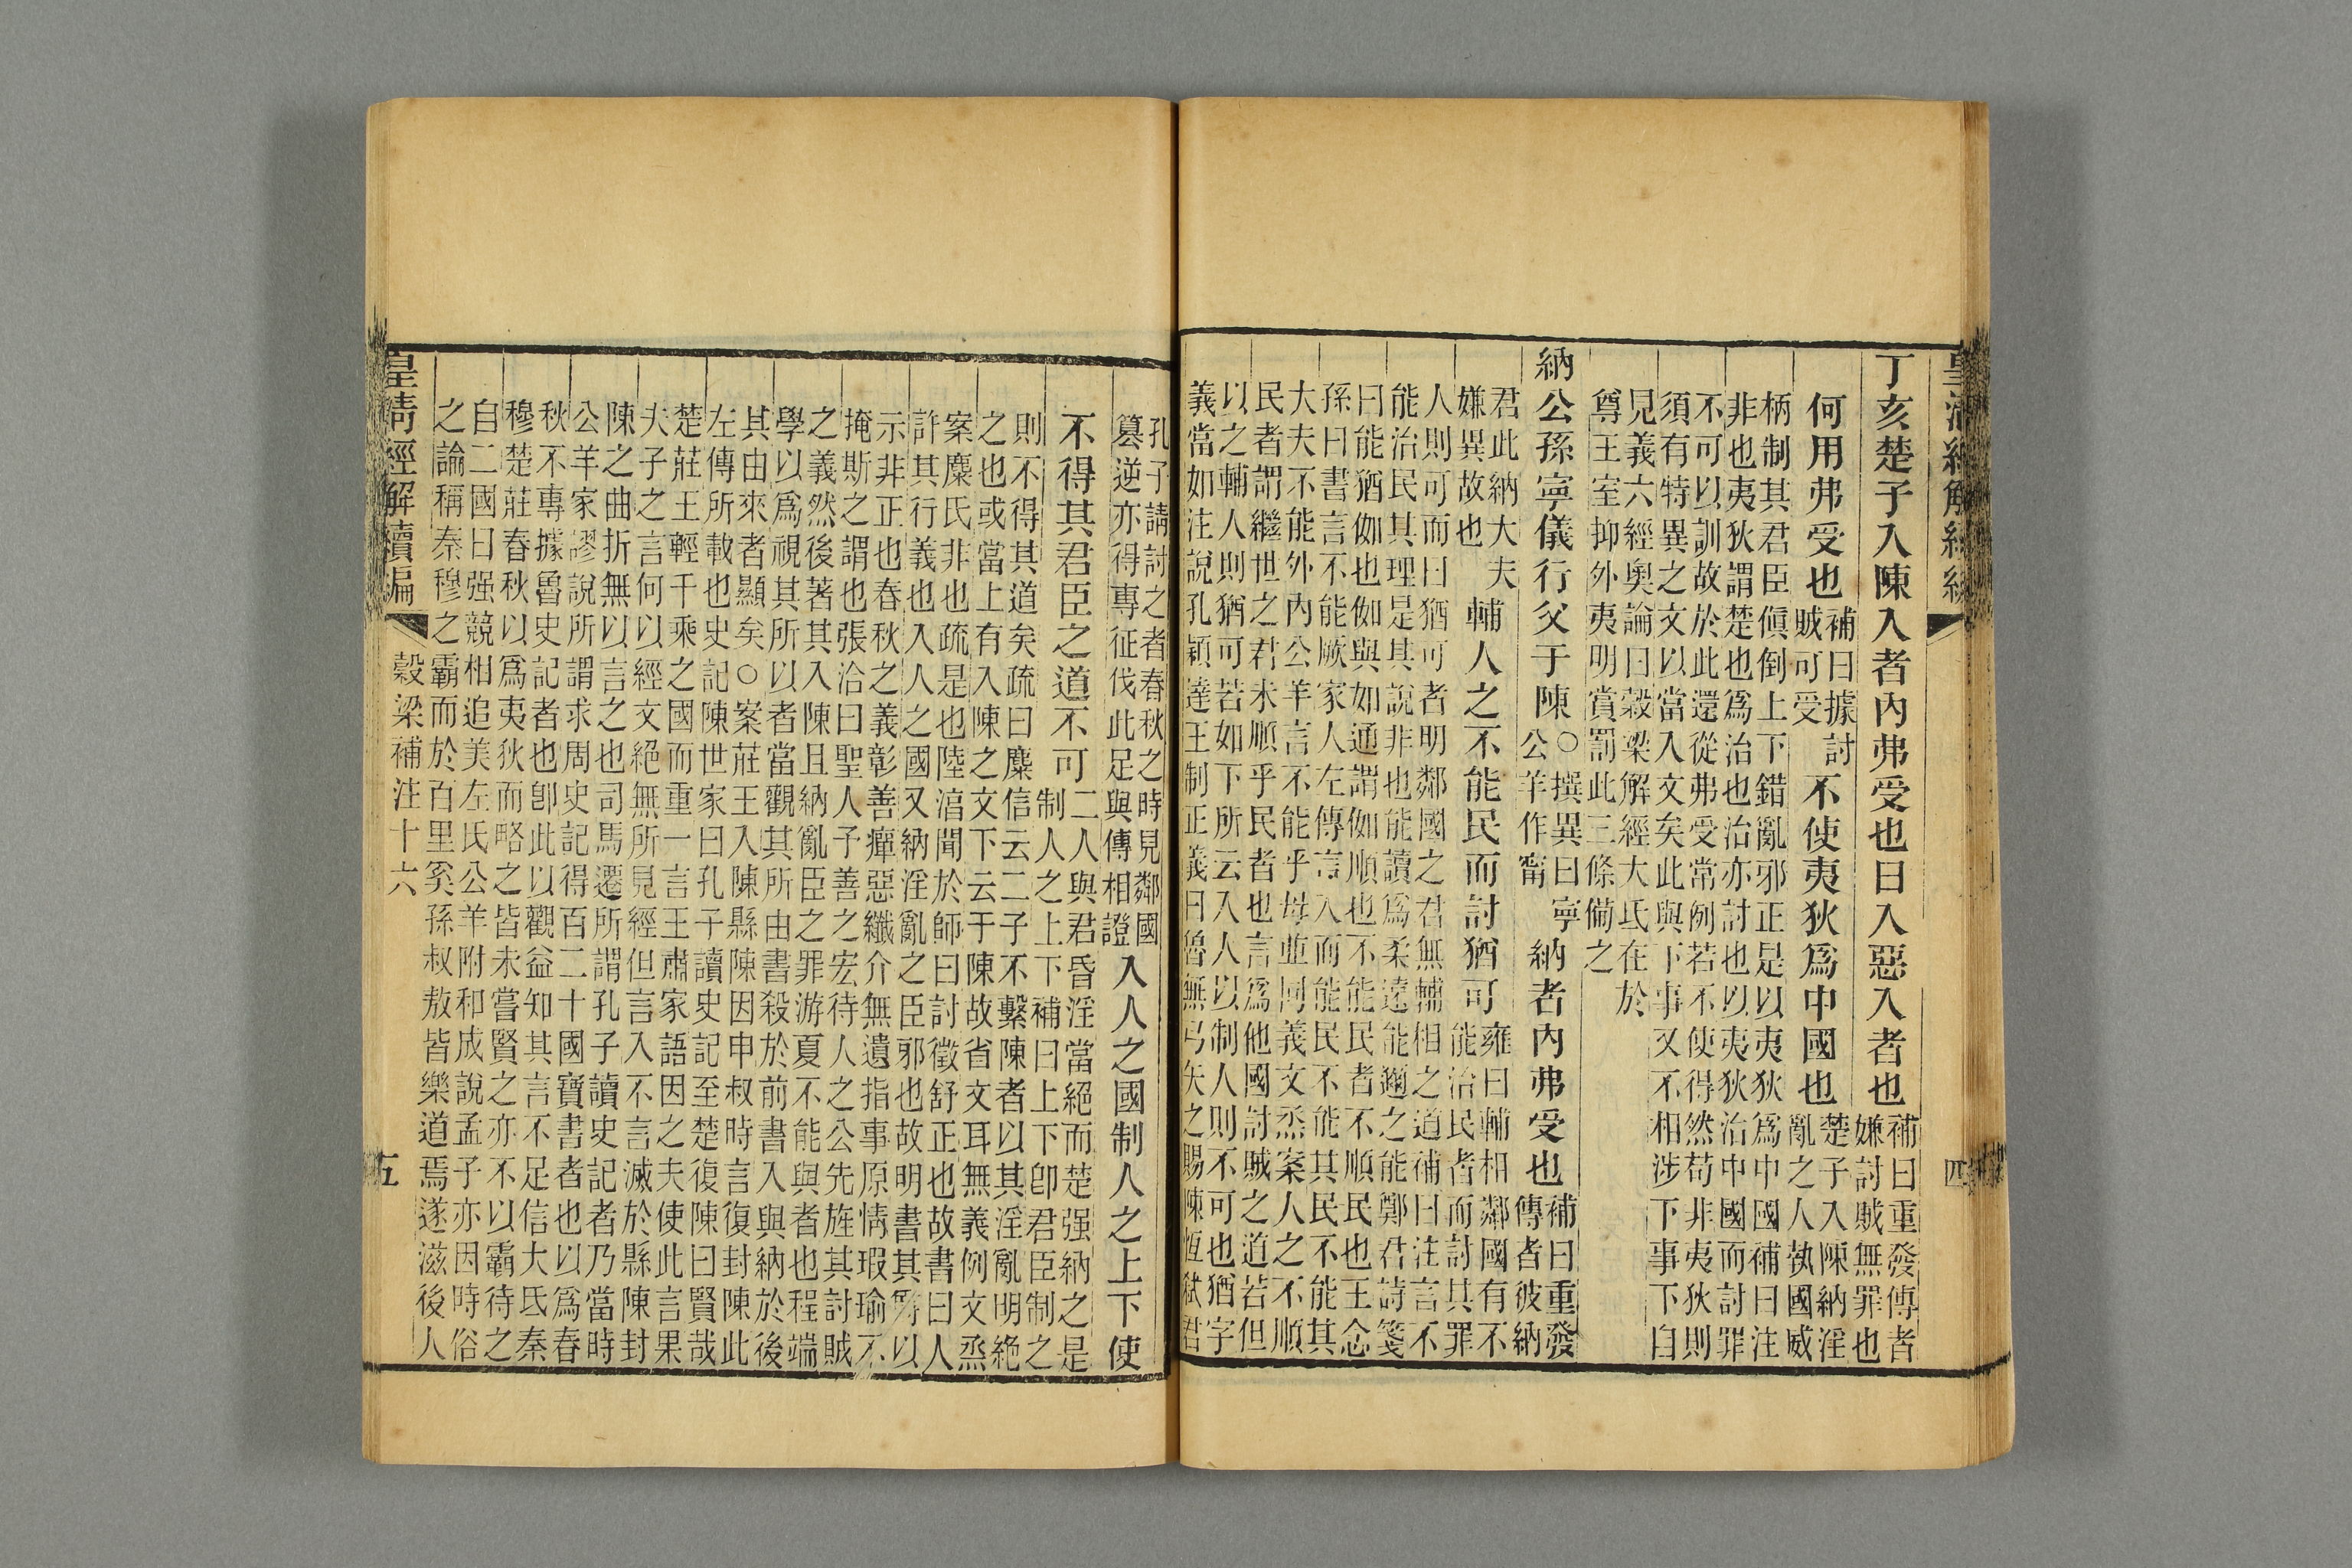 皇清經解續編
四
丁亥楚子入陳入者內弗受也曰入惡入者也
補曰重發傳者
嫌討賊無罪也
何用弗受也
補曰據討
賊可受
不使夷狄爲中國也
楚子入陳納淫
亂之人執國威
柄制其君臣傎倒上下錯亂邪正是以夷狄爲中國補曰注
非也夷狄謂楚也爲治也治亦討也以夷狄治中國而討罪
不可以訓故於此還從弗受常例若不使得然苟非夷狄則
須有特異之文以當入文矣此與下事又不相涉下事下自
見義六經奧論曰穀梁解經大氐在於
尊王室抑外夷明賞罰此三條備之
納公孫寧儀行父于陳
○撰異曰寧
公羊作甯
納者內弗受也
補曰重發
傳者彼納
君此納大夫
嫌異故也
輔人之不能民而討猶可
雍曰輔相鄰國有不
能治民者而討其罪
人則可而曰猶可者明鄰國之君無輔相之道補曰注言不
能治民其理是其說非也能讀爲柔遠能邇之能鄭君詩箋
曰能猶伽也伽與如通謂伽順也不能民者不順民也王念
孫曰書言不能厥家人左傳言入而能民不能其民不能其
大夫不能外內公羊言不能乎母並同義文烝案人之不順
民者謂繼世之君未順乎民者也言爲他國討賊之道若但
以之輔人則猶可若如下所云入人以制人則不可也猶字
義當如注說孔穎達王制正義曰魯無弓矢之賜陳恆弒君
孔子請討之者春秋之時見鄰國
篡逆亦得專征伐此足與傳相證
入人之國制人之上下使
不得其君臣之道不可
二人與君昏淫當絕而楚强納之是
制人之上下補曰上下卽君臣制之
則不得其道矣疏曰麋信云二子不繫陳者以其淫亂明絕
之也或當上有入陳之文下云于陳故省文耳無義例文烝
案麋氏非也疏是也陸淳聞於師曰討徵舒正也故書曰人
許其行義也入人之國又納淫亂之臣邪也故明書其爵以
示非正也春秋之義彰善癉惡纖介無遺指事原情瑕瑜不
掩斯之謂也張洽曰聖人子善之宏待人之公先旌其討賊
之義然後著其入陳且納亂臣之罪游夏不能與者也程端
學以爲視其所以者當觀其所由書殺於前書入與納於後
其由來者顯矣○案莊王入陳縣陳因申叔時言復封陳此
左傳所載也史記陳世家曰孔子讀史記至楚復陳曰賢哉
楚莊王輕千乘之國而重一言王肅家語因之夫使此言果
夫子之言何以經文絕無所見經但言入不言滅於縣陳封
陳之曲折無以言之也司馬遷所謂孔子讀史記者乃當時
公羊家謬說所謂求周史記得百二十國寶書者也以爲春
秋不專據魯史記者也卽此以觀益知其言不足信大氐秦
穆楚莊春秋以爲夷狄而略之皆未嘗賢之亦不以霸待之
自二國日强競相追美左氏公羊附和成說孟子亦因時俗
之論稱秦穆之霸而於百里奚孫叔敖皆樂道焉遂滋後人
皇清經解續編
穀梁補注十六
五